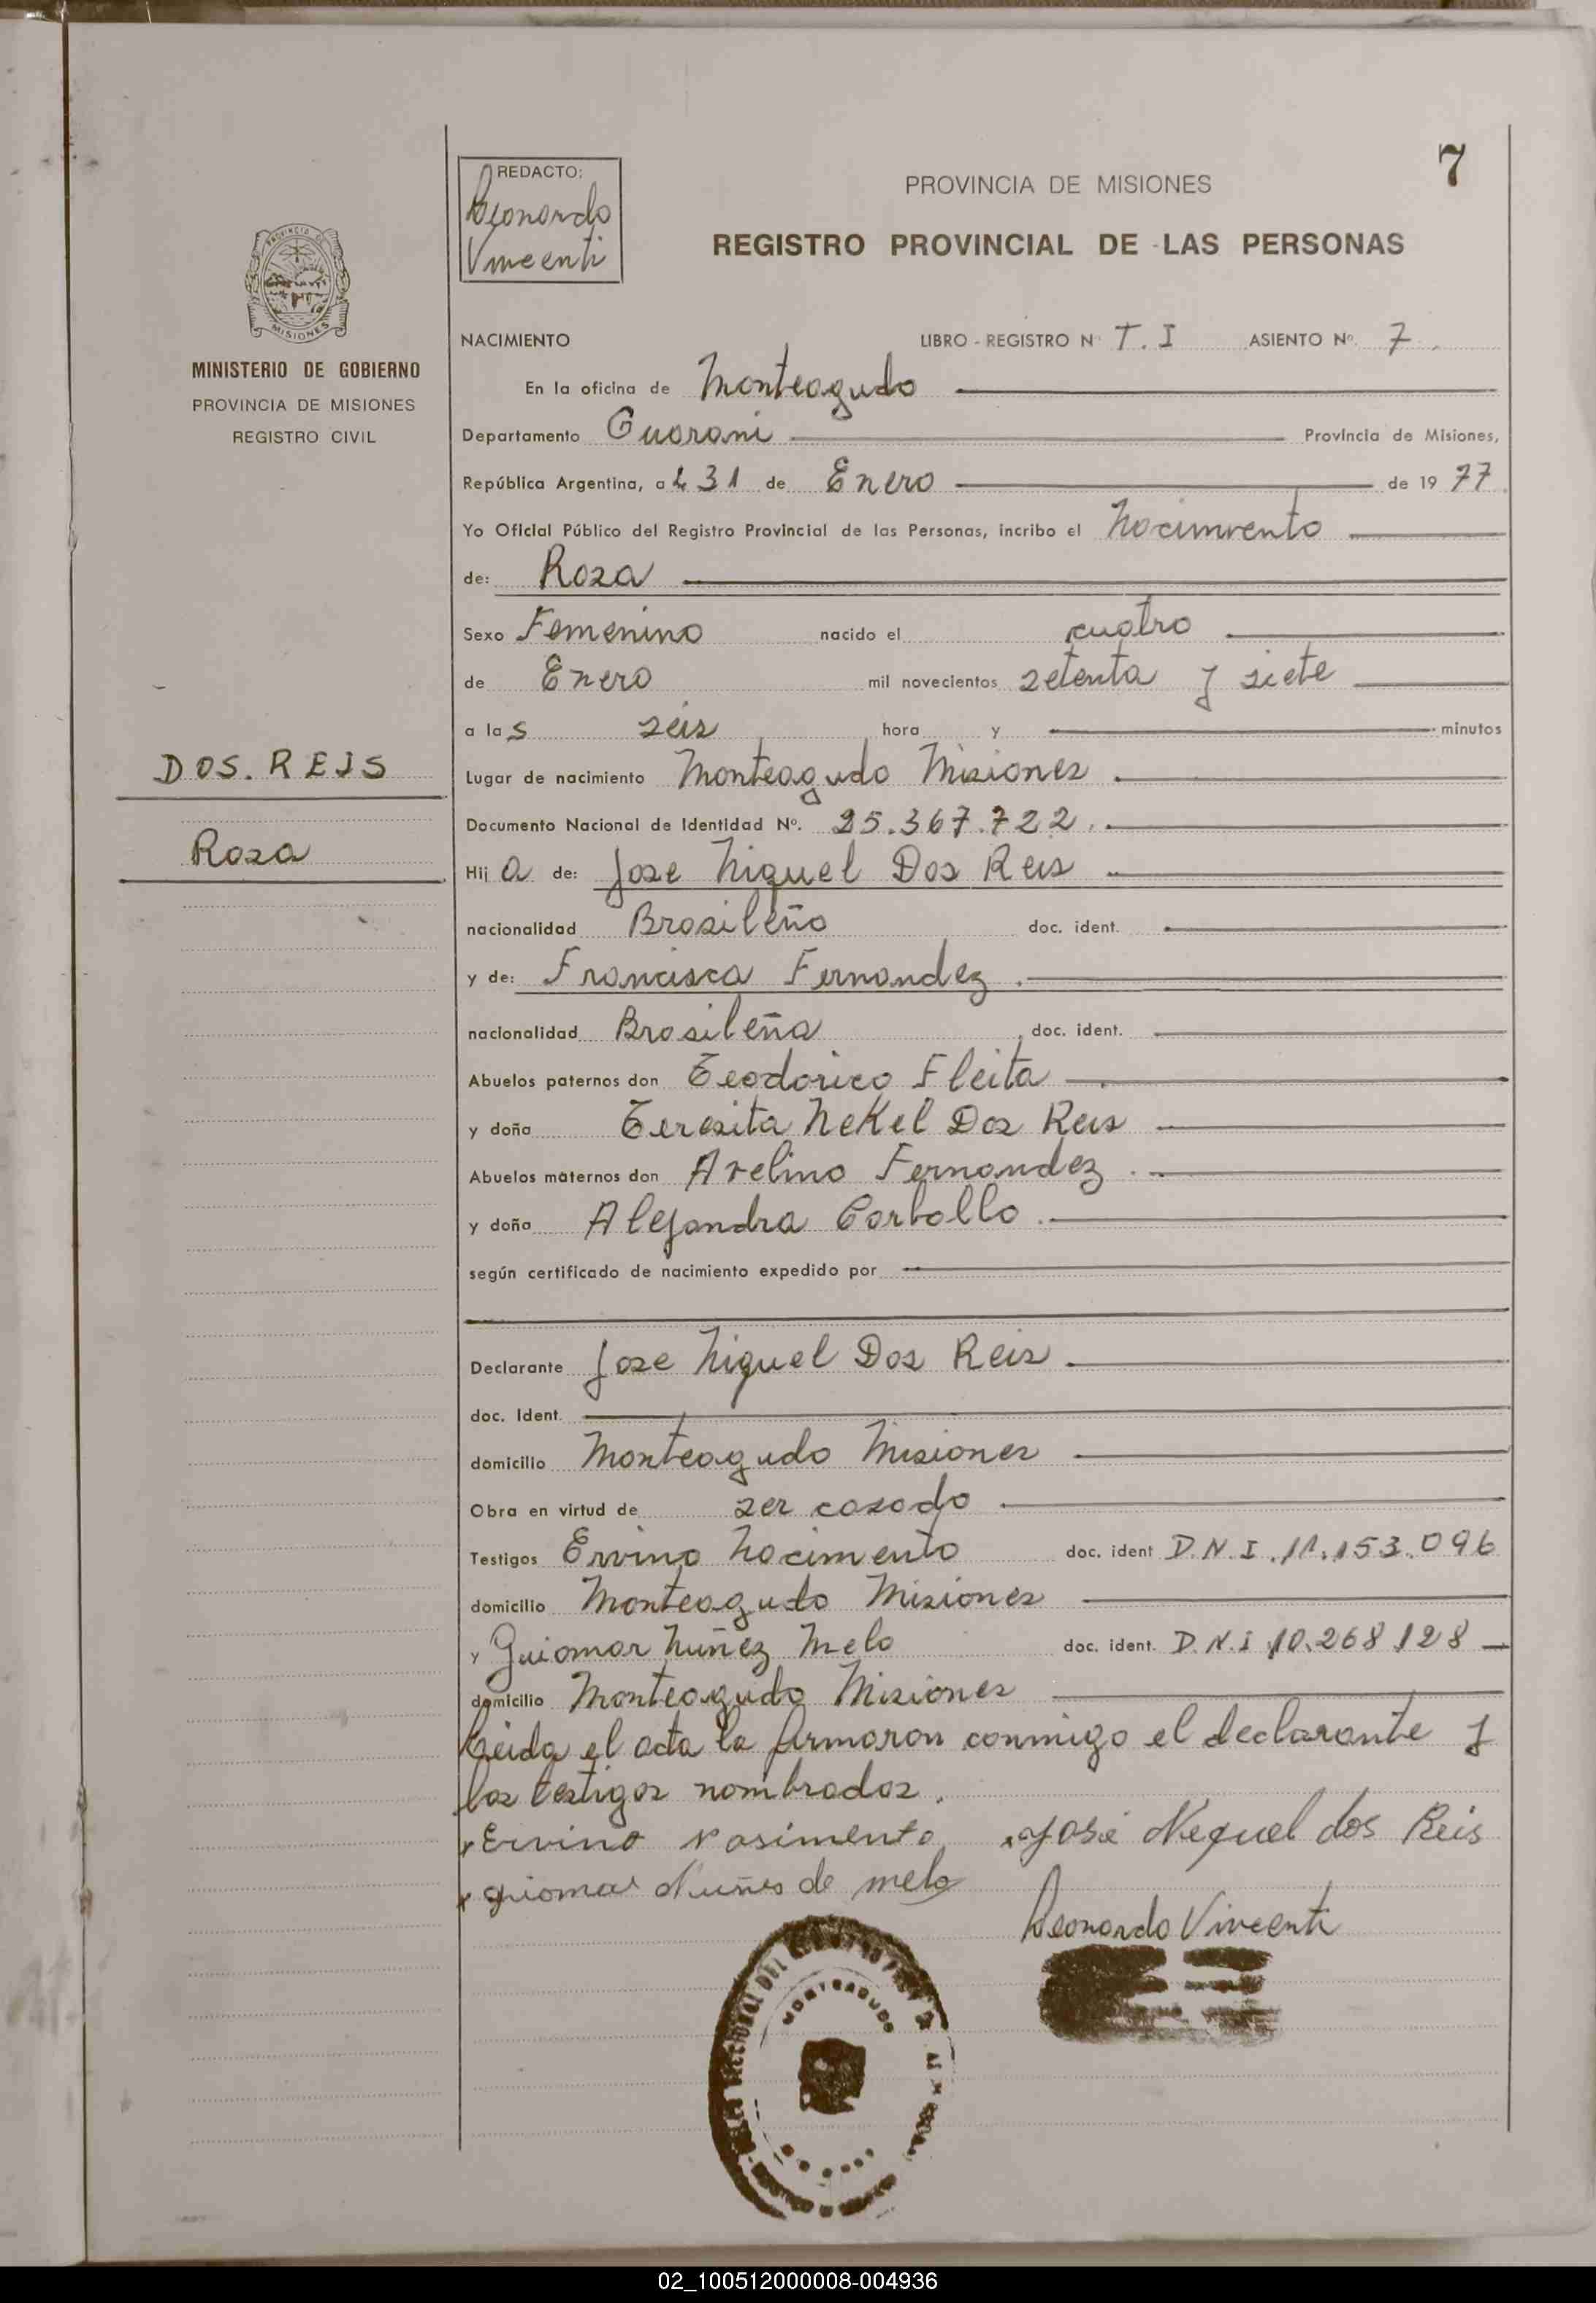 7
REDACTO:
Leonardo
Vincenti
PROVINCIA DE MISIONES
REGISTRO PROVINCIAL DE LAS PERSONAS
MISIONES
MINISTERIO DE GOBIERNO
PROVINCIA DE MISIONES
REGISTRO CIVIL
NACIMIENTO LIBRO - REGISTRO Nº T. I ASIENTO Nº 7.
En la oficina de Monteagudo
Departamento Guarani Provincia de Misiones,
República Argentina, a 31 de Enero de 19 77
Yo Oficial Público del Registro Provincial de las Personas, incribo el Nacimiento
de: Rosa
Sexo Femenino nacido el cuatro
de Enero mil novecientos setenta y siete
a las seis hora y minutos
DOS. REIS
Lugar de nacimiento Monteagudo Misiones
Documento Nacional de Identidad Nº. 25.367.722.
Rosa
Hij a de: Jose Niquel Dos Reis
nacionalidad Brasileño doc. ident.
y de: Francisca Fernandez.
nacionalidad Brasileña doc. ident.
Abuelos paternos don Teodorico Fleita
y doña Teresita Nekel Dos Reis
Abuelos maternos don Avelino Fernandez.
y doña Alejandra Carballo.
según certificado de nacimiento expedido por
Declarante Jose Niquel Dos Reis
doc. Ident.
domicilio Monteagudo Misiones
Obra en virtud de ser casado
Testigos Ervino Nacimento doc. ident D.N.I. 11.153.096
domicilio Monteagudo Misiones
y Guiomar Nuñez Melo doc. ident. D.N.I 10.268.128
domicilio Monteagudo Misiones
Leida el acta la firmaron conmigo el declarante y
los testigos nombrados.
x Ervino Nasimento x José Nequel dos Reis
x guiomar Nuñes de melo
Leonardo Vincenti
MONTEAGUDO
02_100512000008-004936